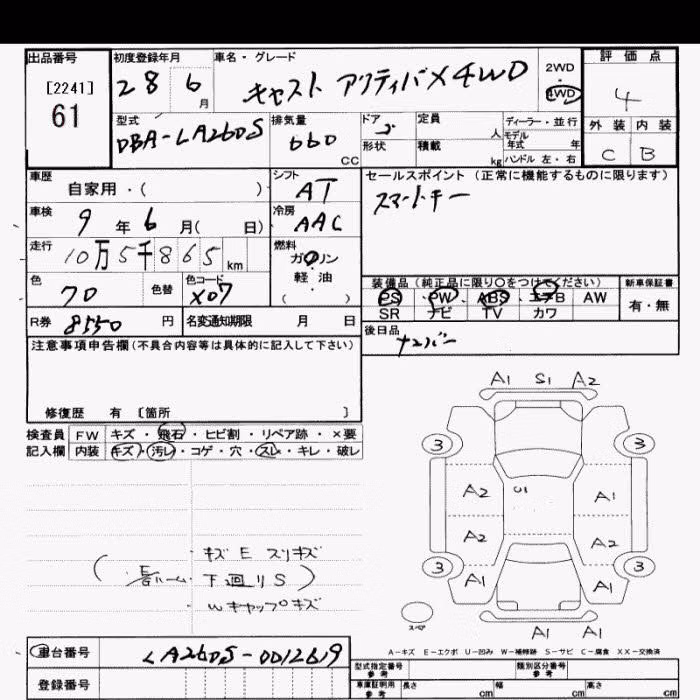 出品番号 初度登録年月 車名・グレード 評価点
[2241] 61 28 6月 キャスト アクティバX4WD 2WD・4WD 4
型式 排気量 ドア 定員 人 ディーラー・並行 外装 内装
DBA-LA260S 660 CC 5 形状 積載 kg モデル年式 年 ハンドル 左・右 C B
車歴 シフト セールスポイント (正常に機能するものに限ります)
自家用・( ) AT スマートキー
車検 冷房
9年6月( 日) AAC
走行 燃料
10万5千865km ガソリン・軽油・( )
色 色替 色コード 装備品 (純正品に限り〇をつけてください) 新車保証書
70 X07 PS PW ABS エアB AW 有・無
SR ナビ TV カワ
R券 8550円 名変通知期限 月 日 後日品 ナンバー
注意事項申告欄(不具合内容等は具体的に記入して下さい)
修復歴 有 〔箇所 〕
検査員 FW キズ・飛石・ヒビ割・リペア跡・×要
記入欄 内装 キズ・汚レ・コゲ・穴・スレ・キレ・破レ
A1 S1 A2
3 3
A2 U1 A1
A2 A2
3 3
A1 A1
・キズ E スリキズ
下廻りS
・Wキャップキズ
スペア
A1 A1
A-キズ E-エクボ U-凹み W-補修跡 S-サビ C-腐食 XX-交換済
車台番号 LA260S-0012619
登録番号
型式指定番号 参考 類別区分番号 参考
車庫証明用 参考 長さ cm 幅 cm 高さ cm